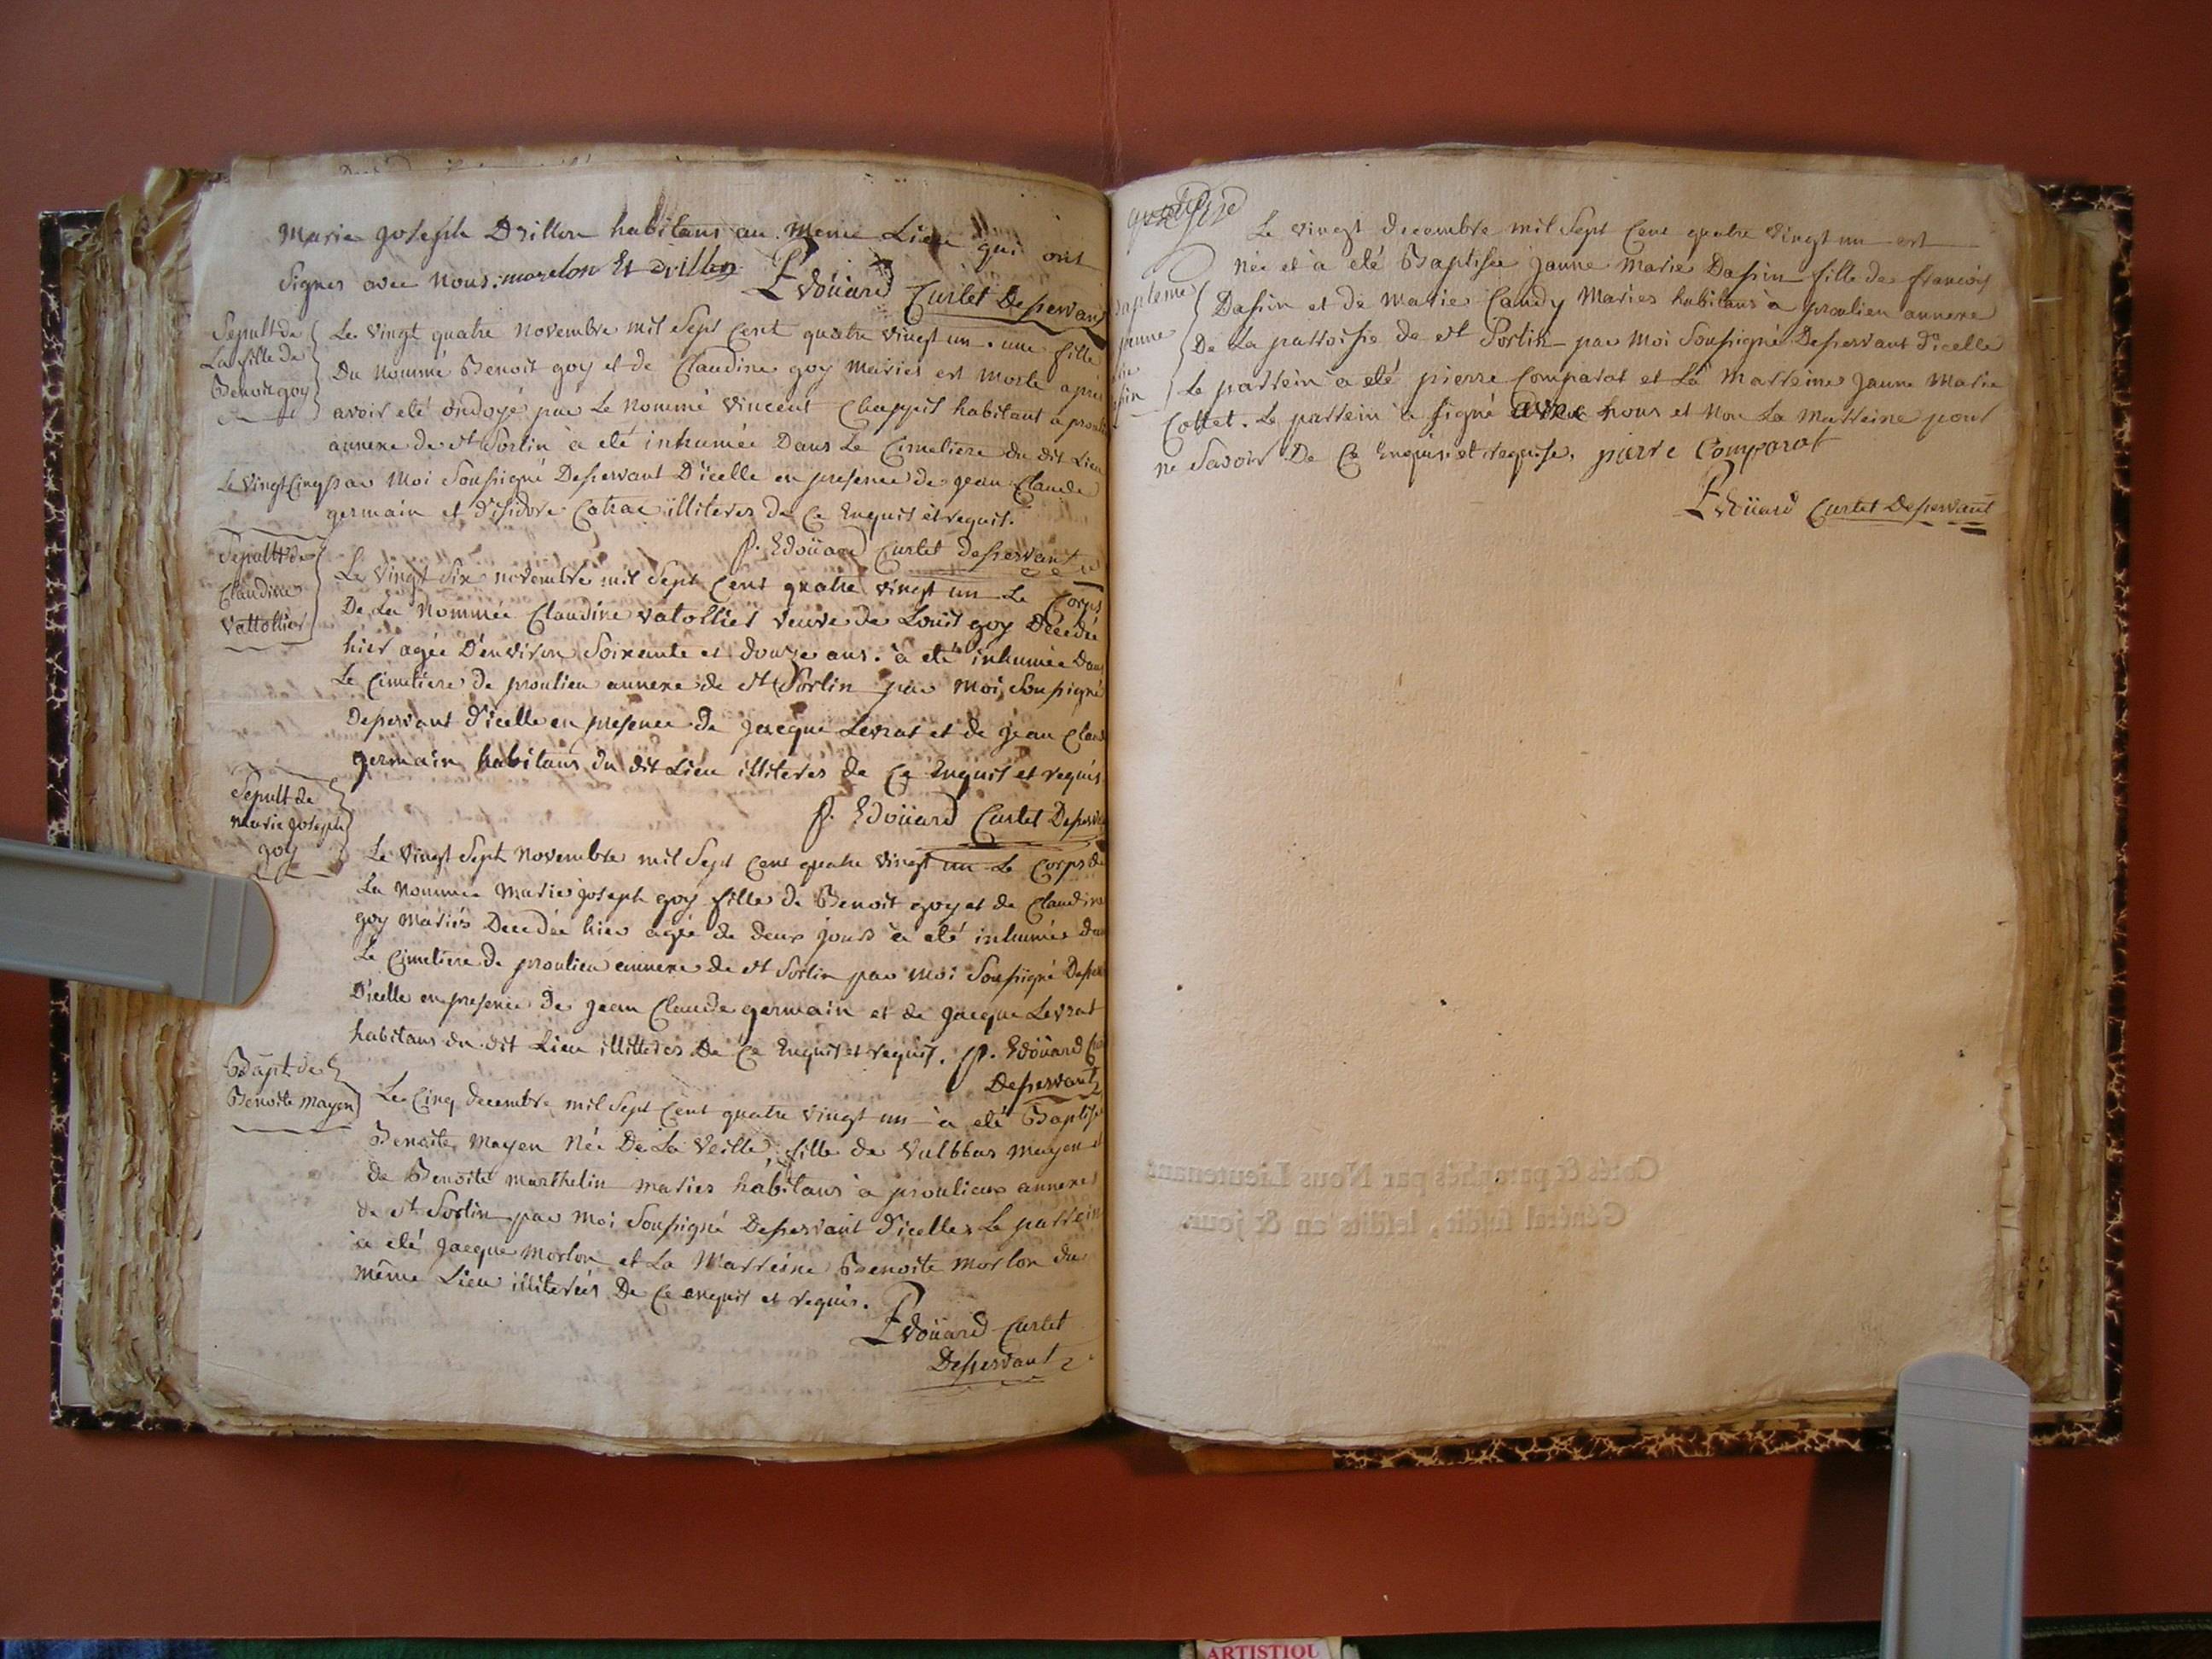 Marie joseph Drillon habitans au Meme Lieu qui ont
Signes avec Nous. morelon Et drillon Edoüard Curlet Deservant
Sepult de
La fille de
Benoit goy
Le vingt quatre novembre mil Sept Cent quatre vingt un. une fille
Du nommé Benoit goy et de Claudine goy Mariés est morte après
avoir eté ondoyé par Le nommé vincent Chappit habitant a proulieu
annexe de st Sorlin a eté inhumée Dans Le Cimetiere du dit Lieu
Le vingt Cinq par Moi Soussigné Deservant D'icelle en presence de jean Claude
germain et d'isidore Cotrae illiteres de Ce Enquis et requis.
P. Edoüard Curlet deservant
Sepult de
Claudine
Vattollier
Le vingt Six novembre mil Sept Cent quatre vingt un Le Corps
De La Nommée Claudine vatollier veuve de Louis goy Décedée
hier agée D'environ Soixante et douze ans. a eté inhumée Dans
Le Cimetiere de proulieu annexe de st Sorlin par Moi Soussigné
Deservant d'icelle en presence de jacque Levrat et de jean Claude
germain habitans du dit Lieu illiteres de Ce Enquis et requis
P. Edoüard Curlet Deserv
Sepult de
marie joseph
goy
Le vingt Sept Novembre mil Sept Cent quatre vingt un Le Corps de
La nommée Marie joseph goy fille de Benoit goy et de Claudine
goy Mariés Decedée hier agée de deux jours a eté inhumée dans
Le Cimetiere de proulieu annexe de st Sorlin par Moi Soussigné Deser
D'icelle en presence de jean Claude germain et de jacque Levrat
habitans du dit Lieu illitteres De Ce Enquis et requis. P. Edoüard Cur
Deservant
Bapt. de
Benoite mayen
Le Cinq decembre mil Sept Cent quatre vingt un a eté Baptisé
Benoite Mayen Née De La Veille, fille de Vulbbas mayen et
de Benoite marthelin maries habitans a proulieux annexe
de st Sorlin par Moi Soussigné Deservant d'icelle. Le parrein
a eté jacque morlon et La Marreine Benoite morlon du
même Lieu illiterés De Ce enquis et requis.
Edoüard Curlet
Deservant
Le vingt decembre mil Sept Cent quatre vingt un est
Née et a eté Baptisée janne Marie Dassin fille de francois
apteme
janne
Dassin et de Marie Candy Maries habitans a proulieu annexe
De La parroisse de st Sorlin par Moi Soussigné Deservant D'icelle
Le parrein a eté pierre Comparat et La Marreine janne Marie
Cottet. Le parrein a signé avec nous et Non La Marreine pour
ne Savoir De Ce Enquise et requise. pierre Comparat
Edoüard Curlet Deservant
Cotés & paraphés par Nous Lieutenant
Général susdit, lesdits an & jour.
ARTISTIQU